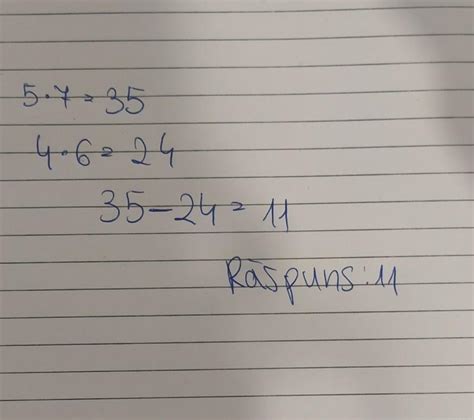 5·7=35
4·6=24
35-24=11
Răspuns:11